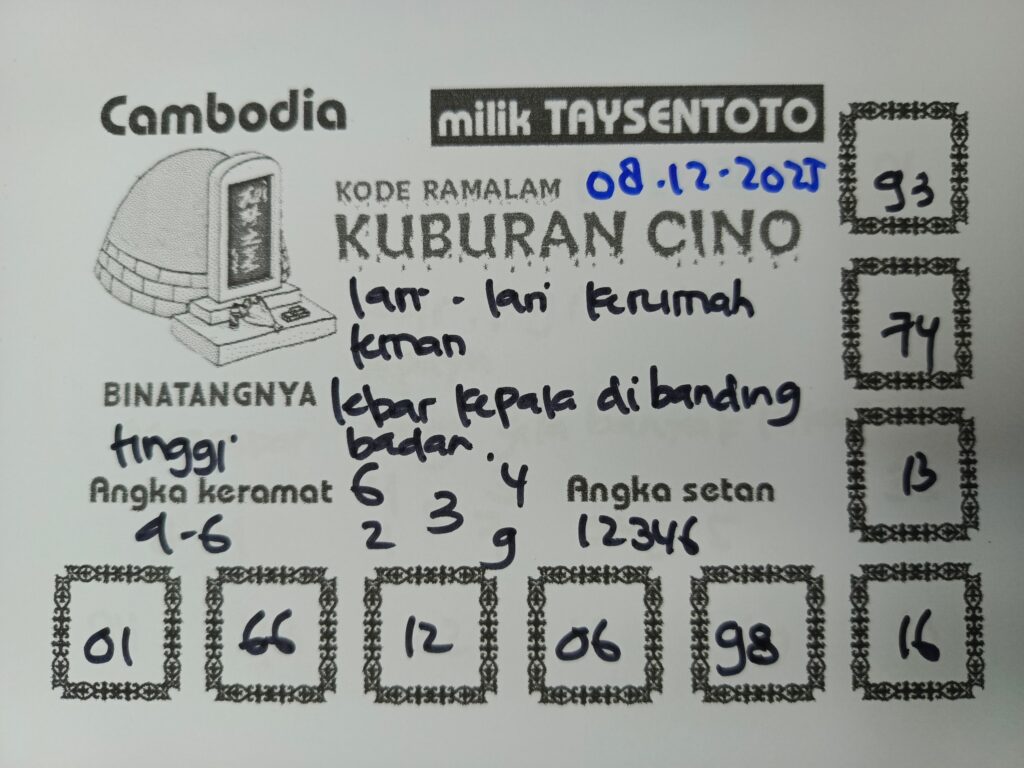 Cambodia
milik TAYSENTOTO
KODE RAMALAM 08.12.2025
KUBURAN CINO
lari - lari kerumah
teman
BINATANGNYA lebar kepala dibanding
tinggi badan.
Angka keramat 6 4 Angka setan
9-6 2 3 9 12346
93
74
13
01 66 12 06 98 16